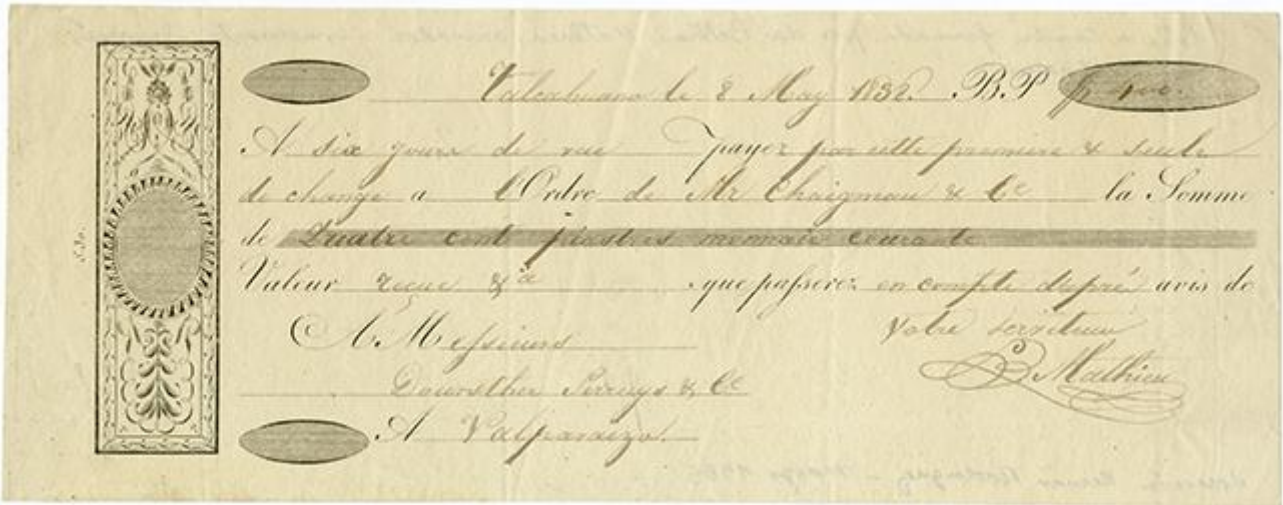 Talcahuano le 8 May 1832. B.P. 400.
A six jours de vue payez par cette premiere & seule
de change a l'Ordre de Mr Chaigneau & Ce la Somme
de Quatre cent piastres monnaie courante
Valeur recue que passerez en compte avis de
A Messieurs
Votre serviteur
Mathieu
& Ce
A Valparaizo.